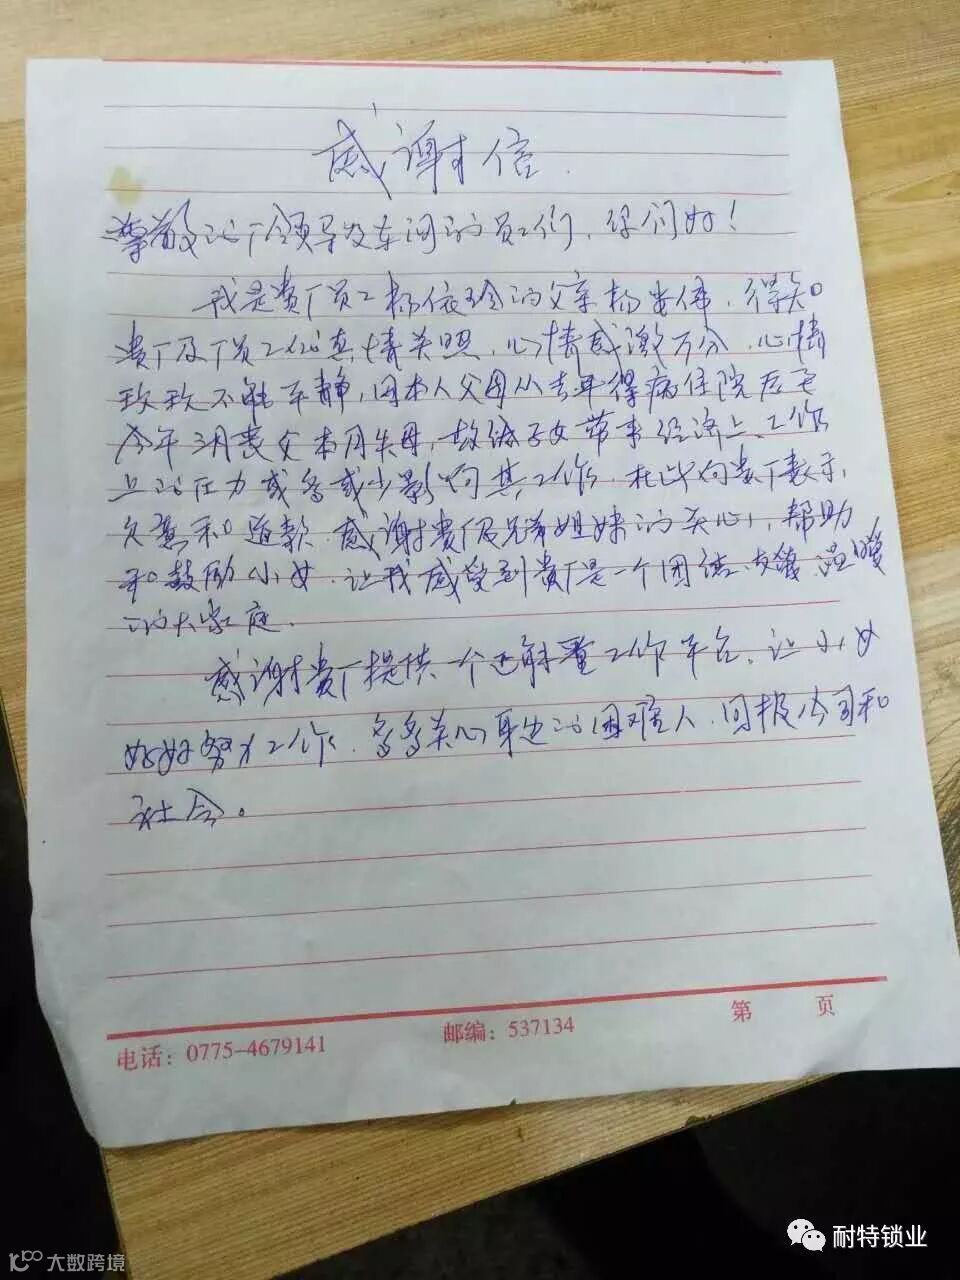 感谢信.
尊敬的厂领导及车间的员工们,你们好!
我是贵厂员工杨依玲的父亲杨忠伟,得知
贵厂及厂员工的真情关照,心情感激万分,心情
久久不能平静,因本人父母从去年得病住院后至
今年3月丧父本月失母,故给子女带来经济上、工作
上的压力或多或少影响其工作,在此向贵厂表示
欠意和道歉.感谢贵厂及兄弟姐妹的关心,帮助
和鼓励小女.让我感受到贵厂是一个团结、友爱、温暖
的大家庭.
感谢贵厂提供一个工作平台,让小女
好好努力工作,多多关心身边的困难人,回报公司和
社会。
电话:0775-4679141 邮编:537134 第 页
耐特锁业
大数跨境